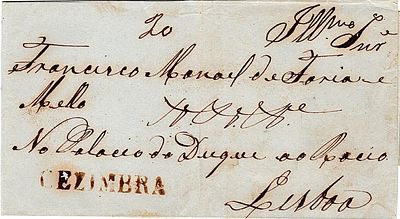 20 Illmo Snr
Francisco Manoel de Faria e
Mello
No Palacio do Duque ao Rocio
CEZIMBRA
Lisboa